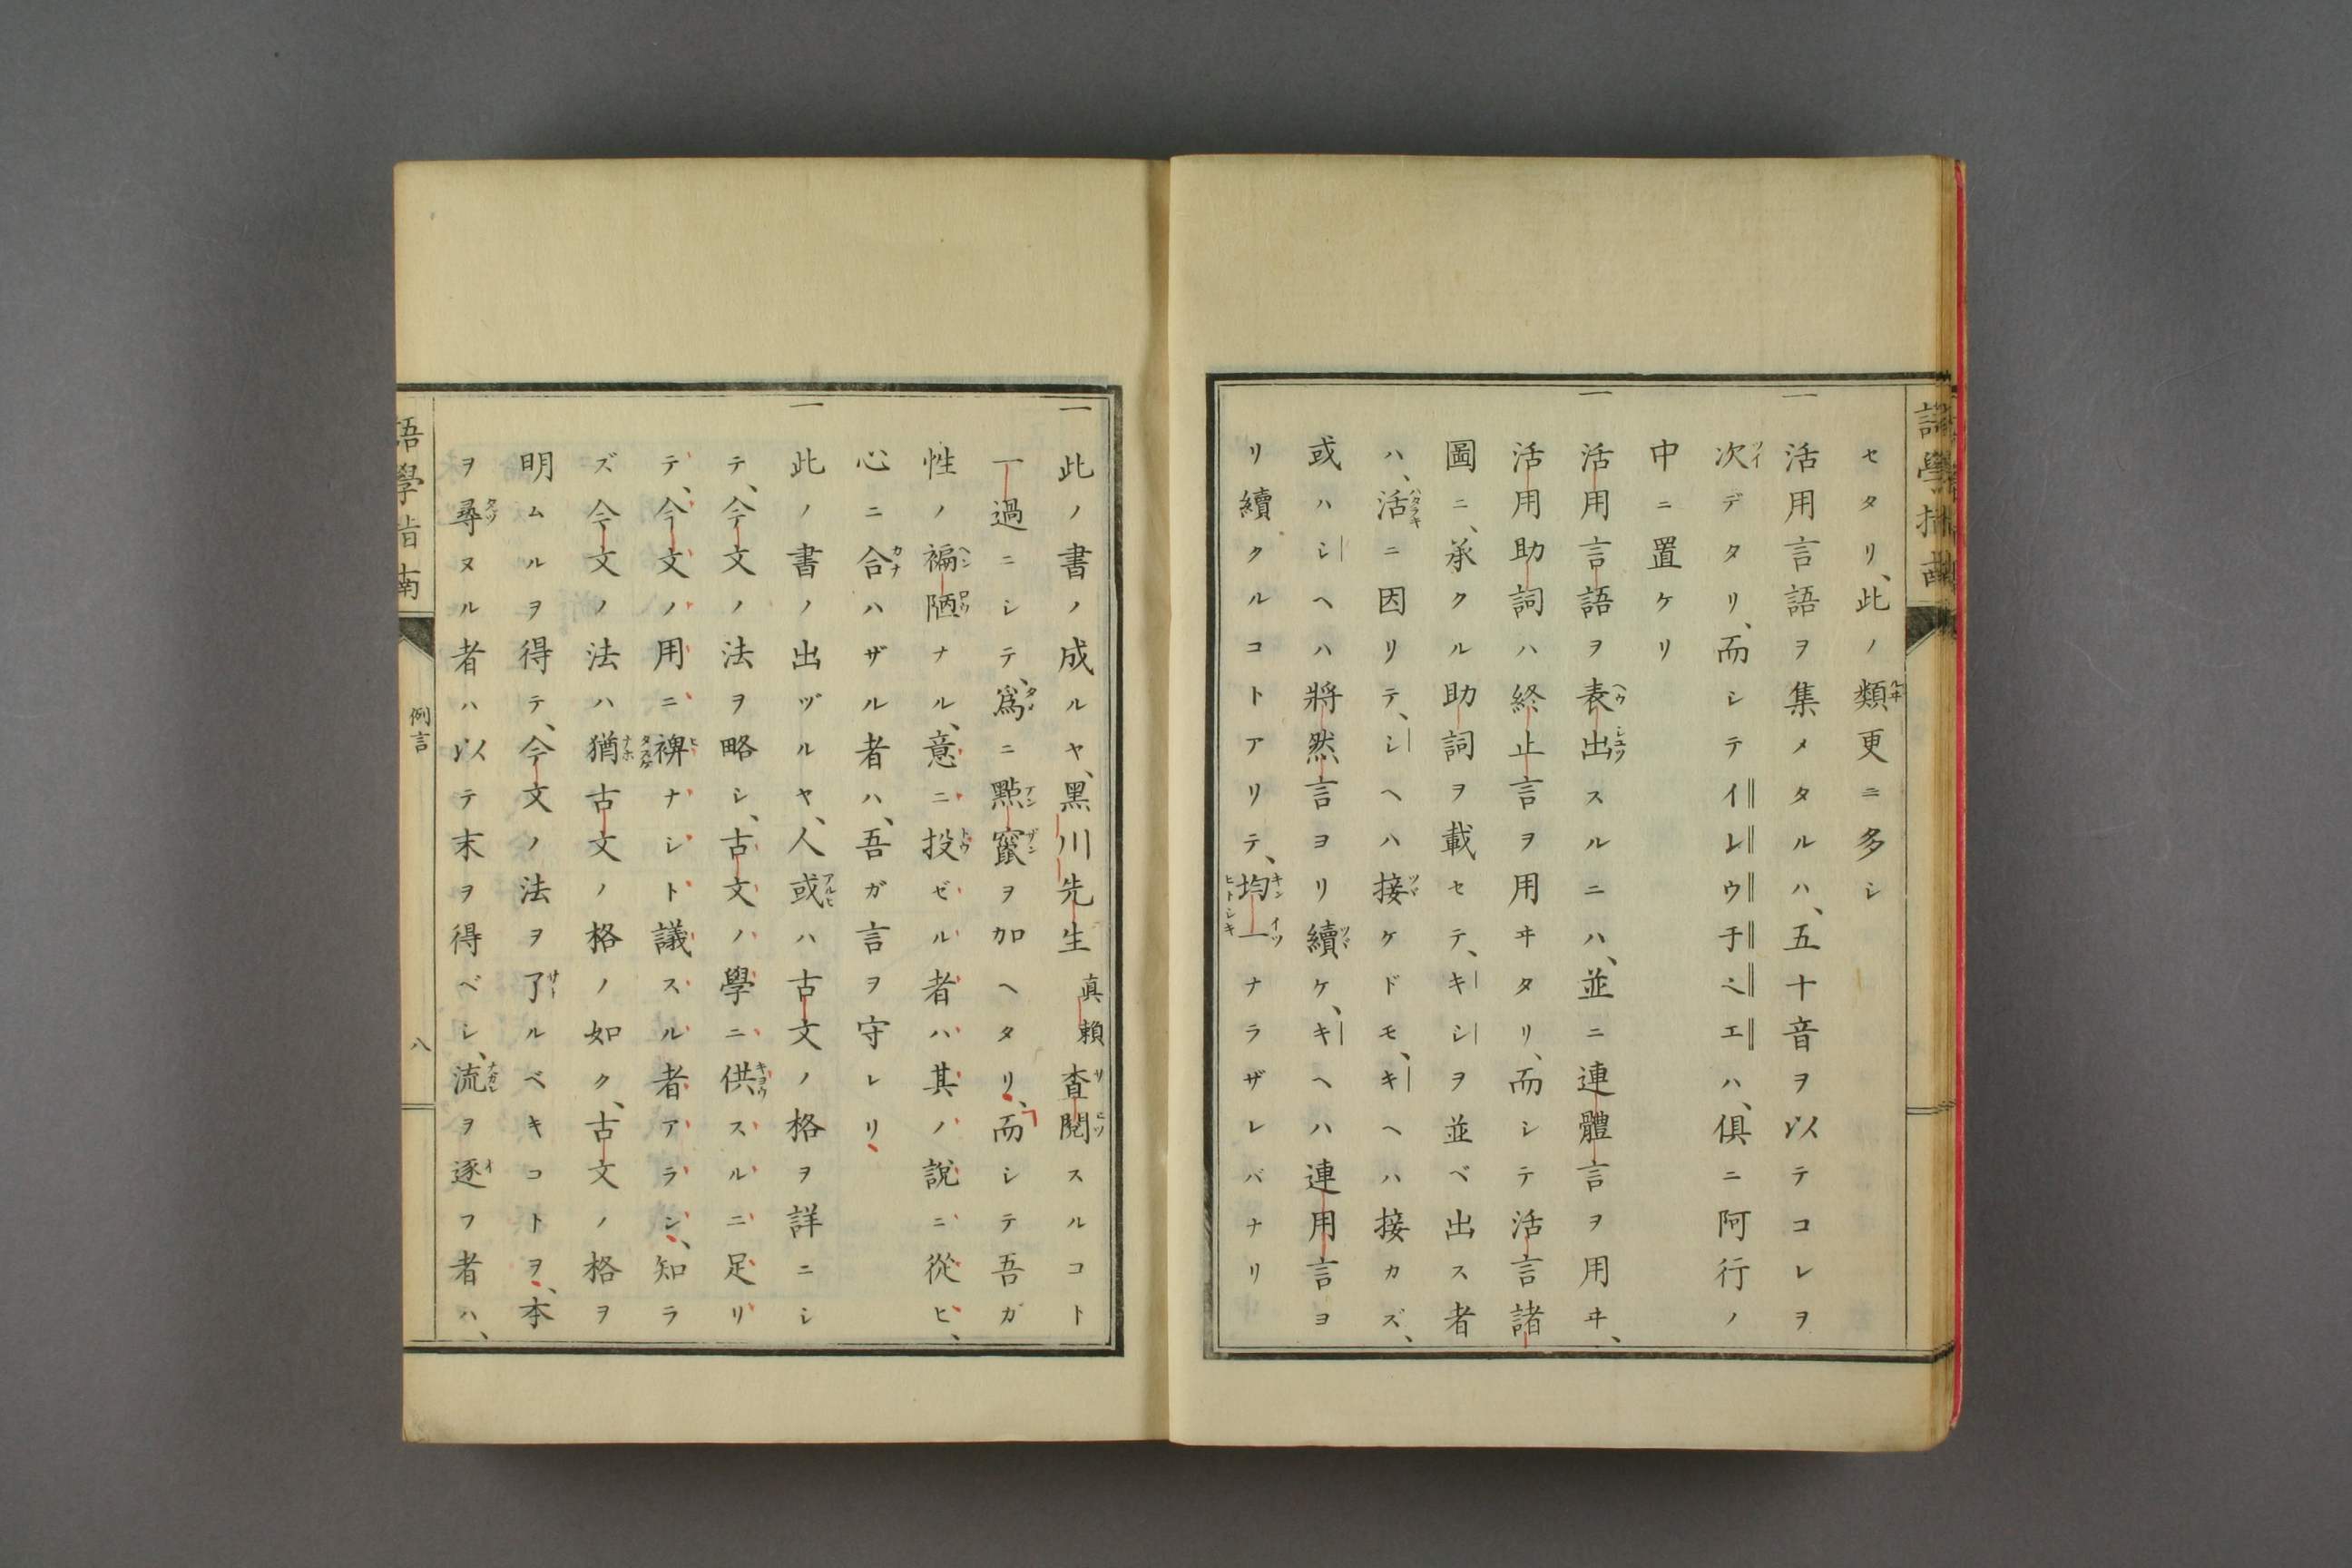 語學指南
セタリ、此ノ類更ニ多シ
一活用言語ヲ集メタルハ、五十音ヲ以テコレヲ
次デタリ、而シテイレウ于エハ、俱ニ阿行ノ
中ニ置ケリ
一活用言語ヲ表出スルニハ、並ニ連體言ヲ用ヰ、
活用助詞ハ終止言ヲ用ヰタリ、而シテ活言諸
圖ニ、承クル助詞ヲ載セテ、キシヲ並ベ出ス者
ハ、活ニ因リテ、シヘハ接ケドモ、キヘハ接カズ、
或ハシヘハ將然言ヨリ續ケ、キヘハ連用言ヨ
リ續クルコトアリテ、均一ナラザレバナリ
一此ノ書ノ成ルヤ、黑川先生眞賴査閱スルコト
一過ニシテ、爲ニ點竄ヲ加ヘタリ、而シテ吾ガ
性ノ褊陋ナル、意ニ投ゼル者ハ其ノ說ニ從ヒ、
心ニ合ハザル者ハ、吾ガ言ヲ守レリ
一此ノ書ノ出ヅルヤ、人或ハ古文ノ格ヲ詳ニシ
テ、今文ノ法ヲ略シ、古文ノ學ニ供スルニ足リ
テ、今文ノ用ニ裨ナシト議スル者アラン、知ラ
ズ今文ノ法ハ猶古文ノ格ノ如ク、古文ノ格ヲ
明ムルヲ得テ、今文ノ法ヲ了ルベキコトヲ、本
ヲ尋ヌル者ハ以テ末ヲ得ベシ、流ヲ逐フ者ハ、
語學指南
例言
八